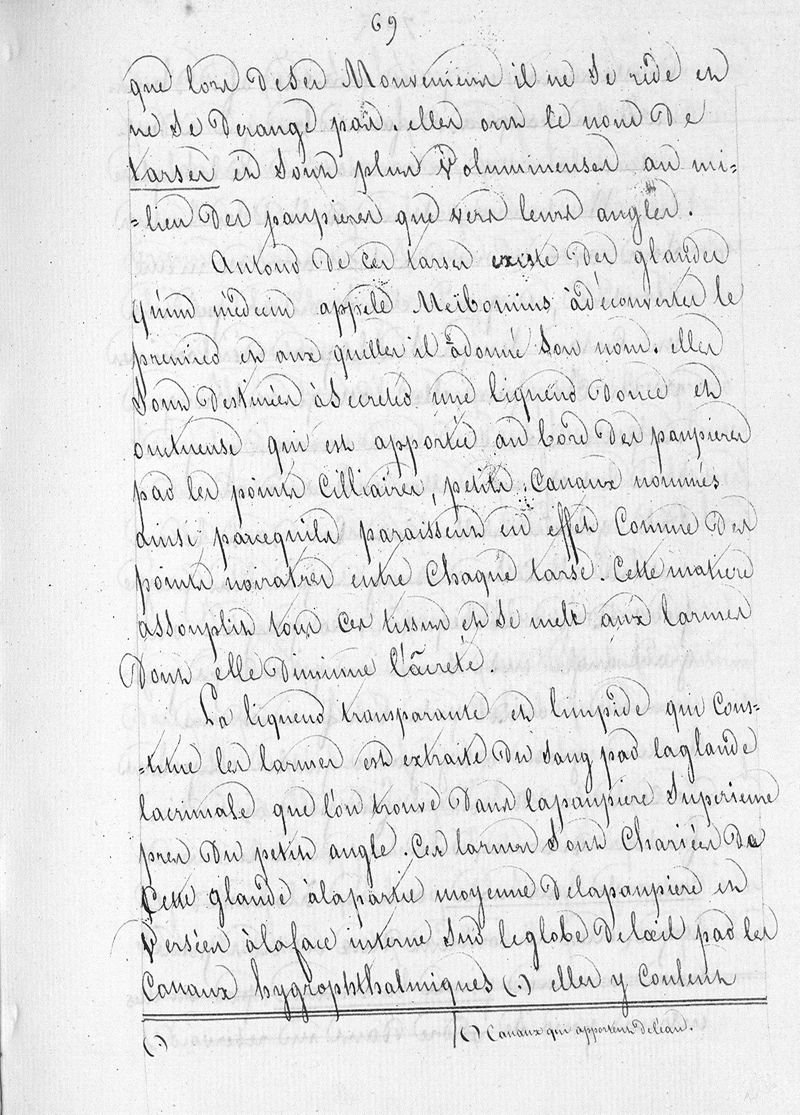 69
que lors de ses Mouvemens il ne se ride et
ne se derange pas. elles ont le nom de
tarses et sont plus Volumineuses au mi-
-lieu des paupieres que vers leurs angles.
Autour de ces tarses existe des glandes
qu'un médecin appelé Meibomius, à découvertes le
premier et aux quelles il à donné son nom. elles
sont destinées à Secreter une liqueur douce et
onctueuse qui est apportée au bord des paupieres
par les points Cilliaires, petits Canaux nommés
ainsi parcequ'ils paraissent en effet Comme des
points noiratres entre Chaque tarse. Cette matiere
assouplit tous Ces tissus et se mele aux larmes
Dont elle Diminue l'âcreté.
La liqueur transparante et limpide qui Cons-
-titue les larmes est extraite du Sang par la glande
lacrimale que l'on trouve Dans la paupiere Superieure
pres Du petit angle. Ces larmes Sont Chariées De
Cette glande à la partie moyenne de la paupiere et
Versées à la face interne Sur le globe De l'œil par les
Canaux hygrophthalmiques (.) elles y Coulent
(.) (.) Canaux qui apportent de l'eau.